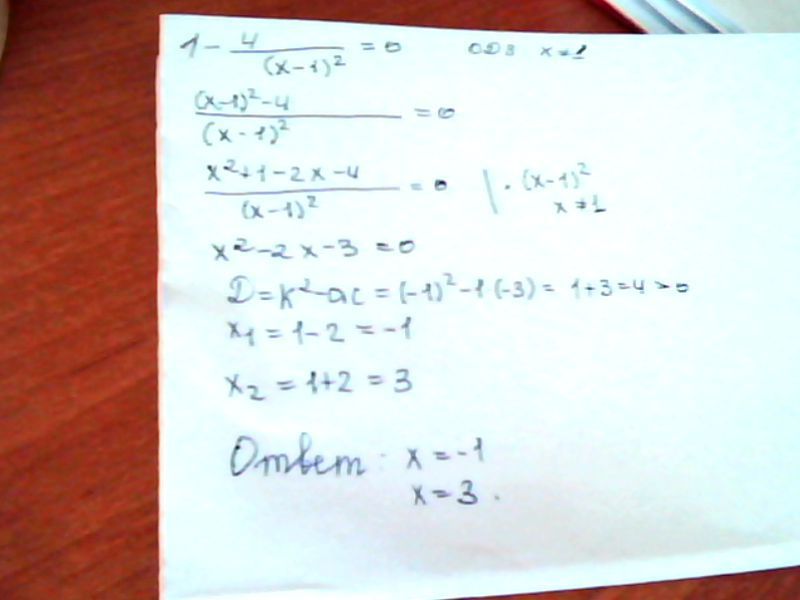 1 - 4/(x-1)² = 0 ОДЗ x ≠ 1
((x-1)² - 4)/(x-1)² = 0
(x² + 1 - 2x - 4)/(x-1)² = 0 | · (x-1)²
x ≠ 1
x² - 2x - 3 = 0
D = k² - ac = (-1)² - 1(-3) = 1+3 = 4 > 0
x₁ = 1 - 2 = -1
x₂ = 1+2 = 3
Ответ: x = -1
x = 3.